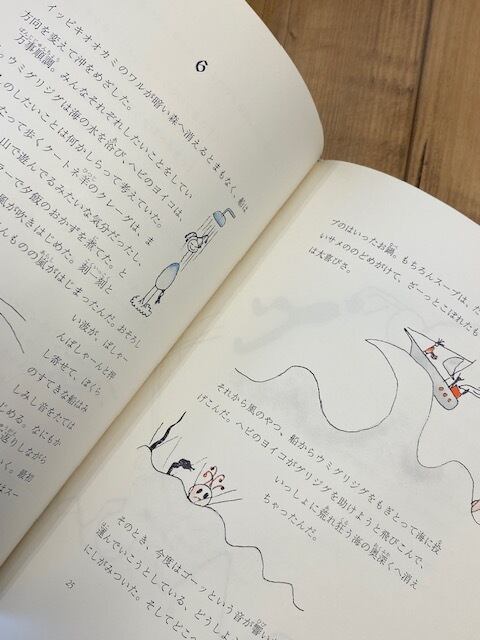 6
イッピキオオカミのワルが暗い森へ消えるとまもなく、船は
方向を変えて沖をめざした。
万事順調。みんなそれぞれしたいことをしてい
。ウミグリジグは海の水を浴び、ヘビのヨイコは、
のしたいことは何かしらって考えていた。
なって歩くクート 羊のクレーグは、ま
山で遊んでるみたいな気分だったし、
ラーで夕飯のおかずを煮てた。と
風が吹きはじめた。刻一刻と
んものの風がはじまったんだ。おそろし
い波が、ばしゃー
んばしゃーんと押
し寄せて、ぼくら
のすてきな船はみ
しみし音をたては
じめる。なにもか
返りしながら
いく。最初
はスー
25
プのはいったお鍋。もちろんスープは、た
いサメののどめがけて、ざーっとこぼれたも
は大喜びさ。
それから風のやつ、船からウミグリジグをもぎとって海に投
げこんだ。ヘビのヨイコがグリジグを助けようと飛びこんで、
いっしょに荒れ狂う海の奥深くへ消え
ちゃったんだ。
そのとき、今度はゴーッという音が響い
運んでいこうとしている、どうしよう
にしがみついた。そしてどこへ